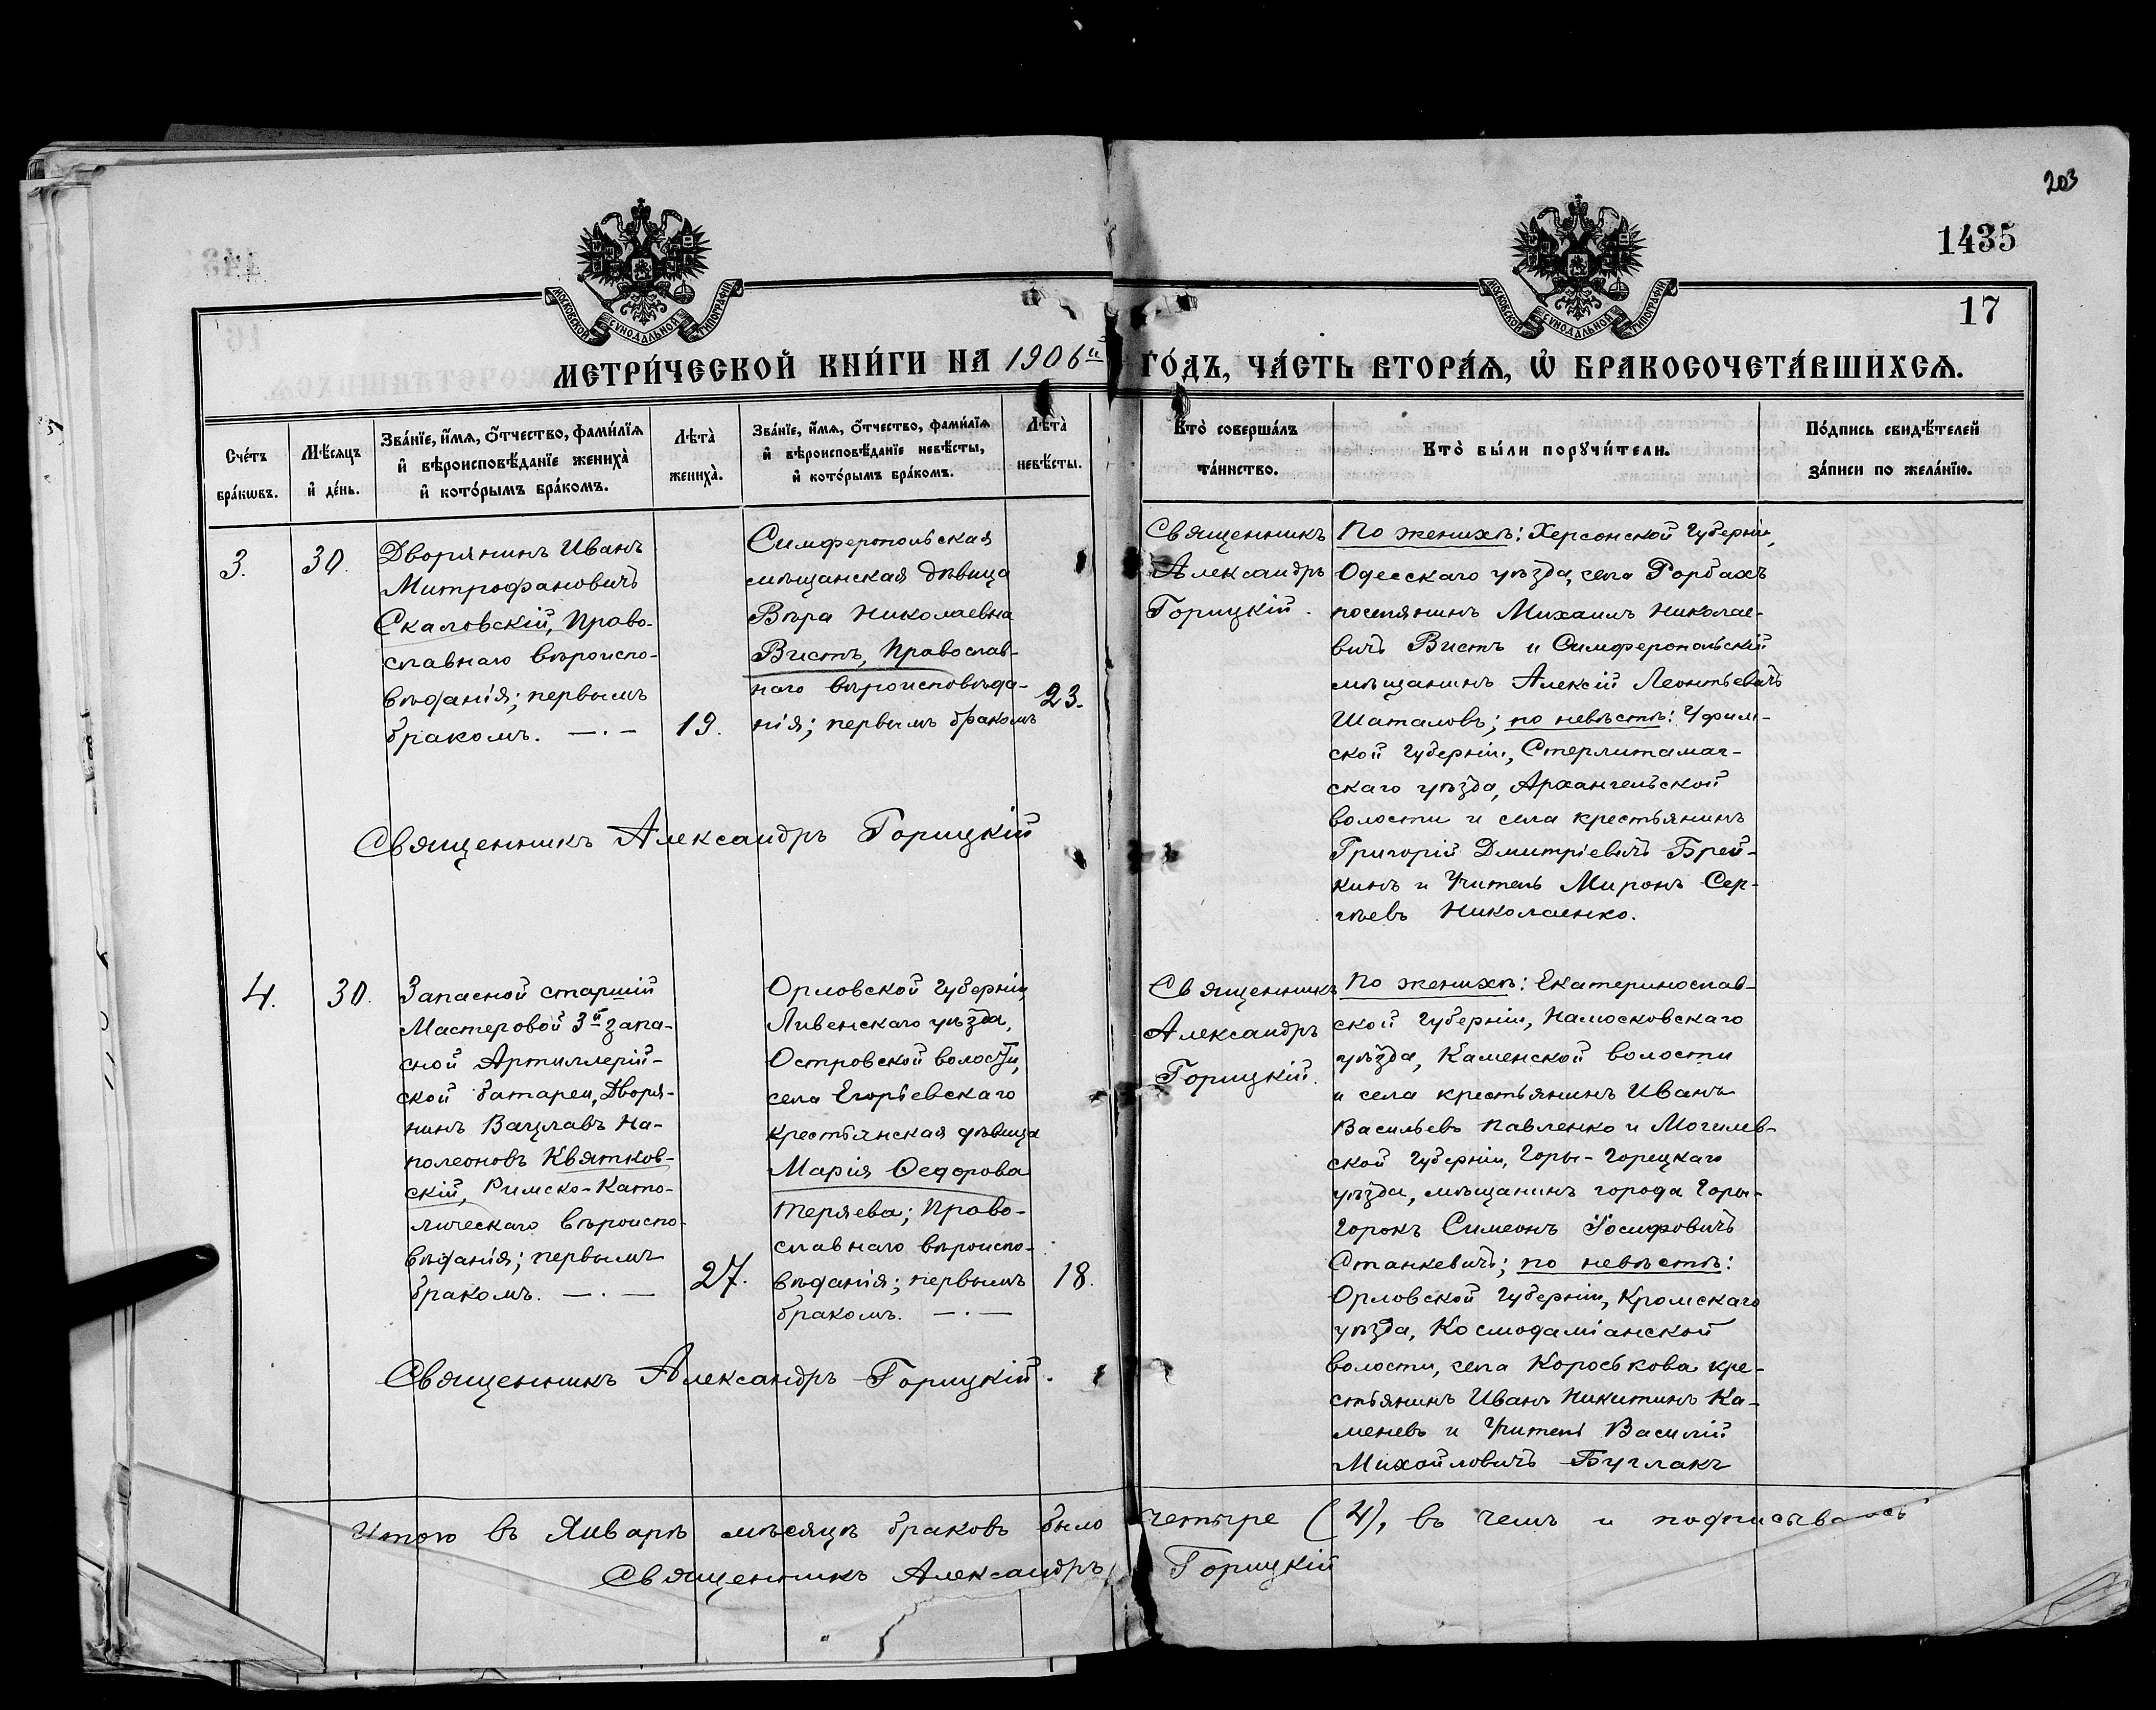 203
1435
17
МОСКОВСКОЙ СѴНОДАЛЬНОЙ ТИПОГРАФІИ
МОСКОВСКОЙ СѴНОДАЛЬНОЙ ТИПОГРАФІИ
МЕТРИ́ЧЕСКОЙ КНИ́ГИ НА 1906й ГО́ДЪ, ЧА́СТЬ ВТОРА́Ѧ, Ѡ҆ БРАКОСОЧЕТА́ВШИХСѦ.
Сче́тъ
бра́кѡвъ.
Мѣ́сяцъ
и҆ де́нь.
Зва́нїе, и҆́мѧ, ѻ҆́тчество, фами́лїѧ
и҆ вѣроисповѣ́данїе жениха̀
и҆ кото́рымъ бра́комъ.
Лѣта̀
жениха̀.
Зва́нїе, и҆́мѧ, ѻ҆́тчество, фами́лїѧ
и҆ вѣроисповѣ́данїе невѣ́сты,
и҆ кото́рымъ бра́комъ.
Лѣта̀
невѣ́сты.
Кто̀ соверша́лъ
та́инство.
Кто̀ бы́ли порꙋчи́тели.
По́дпись свидѣ́телей
за́писи по жела́нїю.
3.
30.
Дворянинъ Иванъ
Митрофановичъ
Скаловскій, Право-
славнаго вѣроиспо-
вѣданія; первымъ
бракомъ. —.—
19.
Симферопольская
мѣщанская дѣвица
Вѣра Николаевна
Вистъ, Православ-
наго вѣроисповѣда-
нія; первымъ бракомъ
23.
Священникъ
Александръ
Горицкій.
По женихѣ: Херсонской Губерніи,
Одесскаго уѣзда, села Горбахъ
поселянинъ Михаилъ Николае-
вичъ Вистъ и Симферопольскій
мѣщанинъ Алексій Леонтьевичъ
Шаталовъ; по невѣстѣ: Уфим-
ской Губерніи, Стерлитамак-
скаго уѣзда, Архангельской
волости и села крестьянинъ
Григорій Дмитріевичъ Брей-
кинъ и Учитель Миронъ Сер-
гѣевъ Николаенко.
Священникъ Александръ Горицкій
4.
30.
Запасной старшій
Мастеровой 3й запа-
сной Артиллерій-
ской батареи, Дворя-
нинъ Вацлавъ На-
полеоновъ Квятков-
скій, Римско-Като-
лическаго вѣроиспо-
вѣданія; первымъ
бракомъ. —.—
27.
Орловской Губерніи,
Ливенскаго уѣзда,
Островской волости,
села Егорьевскаго
крестьянская дѣвица
Марія Ѳедорова
Теряева; Право-
славнаго вѣроиспо-
вѣданія; первымъ
бракомъ. —.—
18.
Священникъ
Александръ
Горицкій.
По женихѣ: Екатеринослав-
ской Губерніи, Намосковскаго
уѣзда, Каменской волости
и села крестьянинъ Иванъ
Васильевъ Павленко и Могилев-
ской Губерніи, Горы-Горецкаго
уѣзда, мѣщанинъ города Горы-
Горокъ Симеонъ Іосифовичъ
Станкевичъ; по невѣстѣ:
Орловской Губерніи, Кромскаго
уѣзда, Космодаміанской
волости, села Короськова кре-
стьянинъ Иванъ Никитинъ Ка-
меневъ и Учитель Василій
Михайловичъ Буглакъ
Священникъ Александръ Горицкій.
Итого въ Январѣ мѣсяцѣ браковъ было четыре (4), въ чемъ и подписываюсь
Священникъ Александръ Горицкій